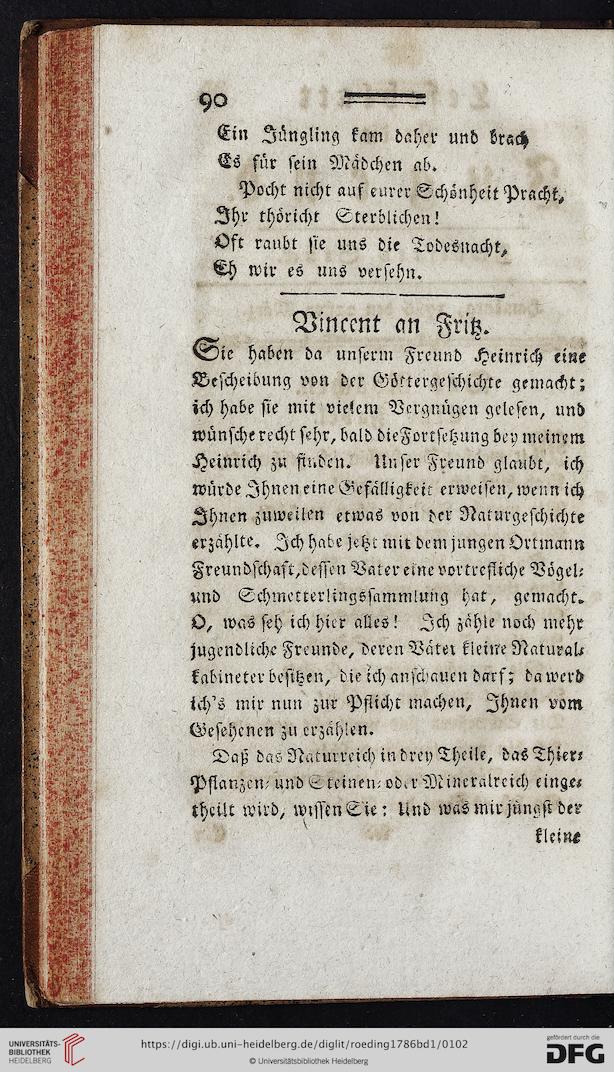 90
Ein Jüngling kam daher und brach
Es für sein Mädchen ab.
Pocht nicht auf eurer Schönheit Pracht,
Ihr thöricht Sterblichen!
Oft raubt sie uns die Todesnacht,
Eh wir es uns versehn.
Vincent an Fritz.
Sie haben da unserm Freund Heinrich eine
Bescheibung von der Göttergeschichte gemacht;
ich habe sie mit vielem Vergnügen gelesen, und
wünsche recht sehr, bald die Fortsetzung bey meinem
Heinrich zu finden. Unser Freund glaubt, ich
würde Ihnen eine Gefälligkeit erweisen, wenn ich
Ihnen zuweilen etwas von der Naturgeschichte
erzählte. Ich habe jetzt mit dem jungen Ortmann
Freundschaft, dessen Vater eine vortrefliche Vögel-
und Schmetterlingssammlung hat, gemacht.
O, was seh ich hier alles! Ich zähle noch mehr
jugendliche Freunde, deren Väter kleine Natural-
kabineter besitzen, die ich anschauen darf; da werd
ich's mir nun zur Pflicht machen, Ihnen vom
Gesehenen zu erzählen.
Daß das Naturreich in drey Theile, das Thier-
Pflanzen- und Steinen- oder Mineralreich einge-
theilt wird, wissen Sie: Und was mir jüngst der
kleine
UNIVERSITÄTS-
BIBLIOTHEK
HEIDELBERG
https://digi.ub.uni-heidelberg.de/diglit/roeding1786bd1/0102
© Universitätsbibliothek Heidelberg
gefördert durch die
DFG